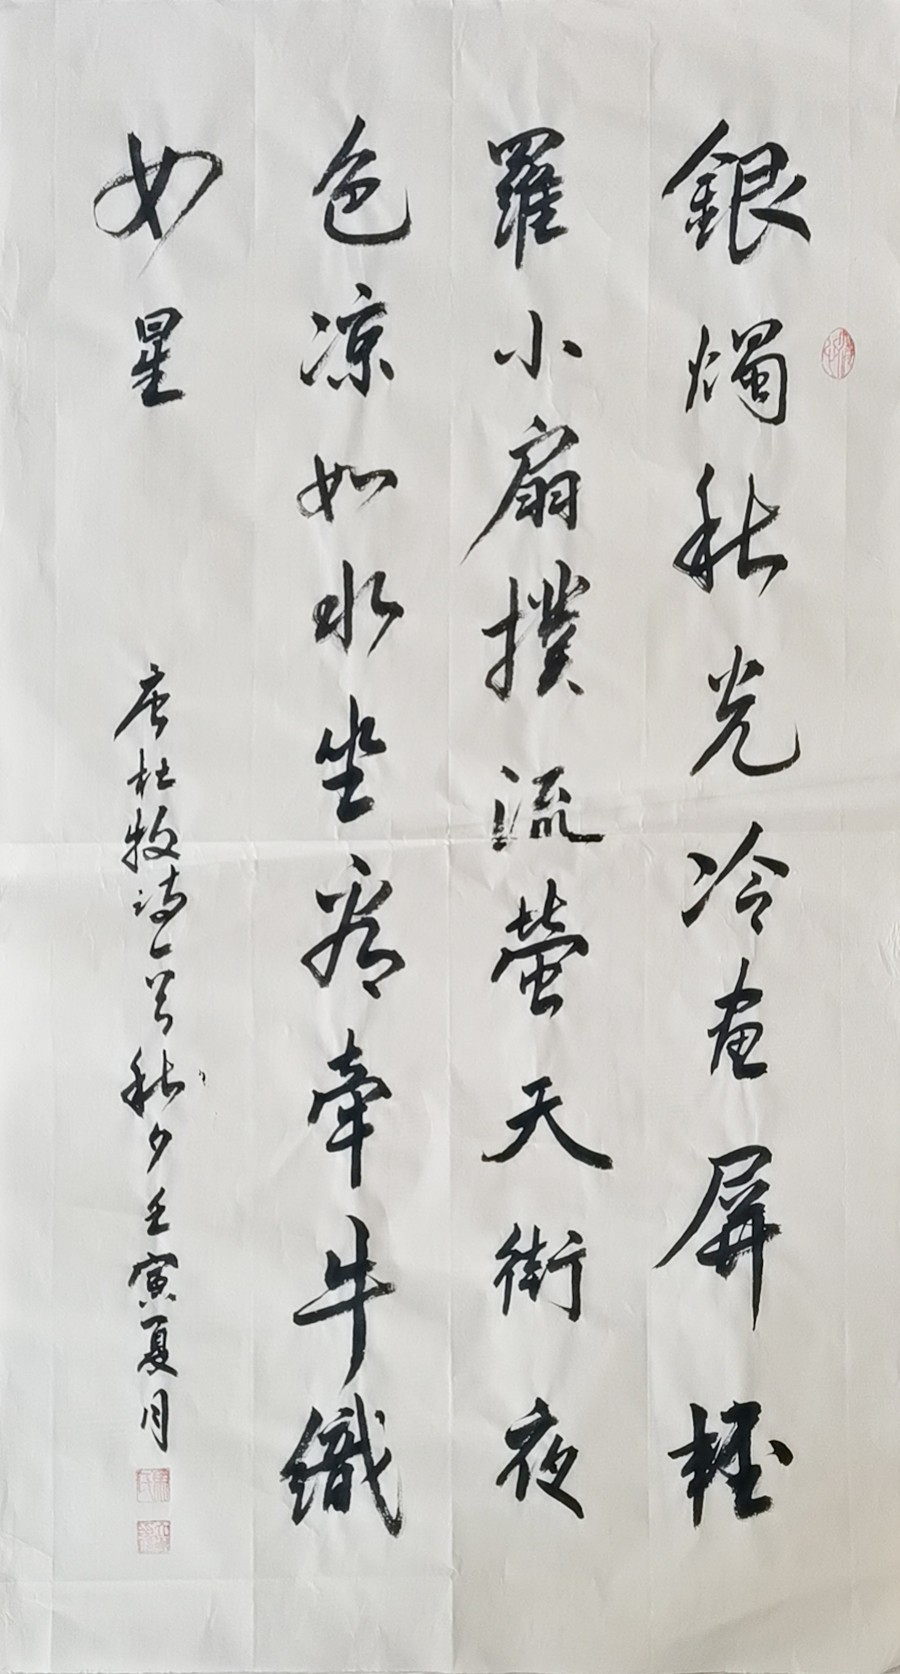 銀燭秋光冷画屏輕
羅小扇撲流螢天街夜
色凉如水坐看牽牛織
女星
唐杜牧诗一首秋夕壬寅夏月